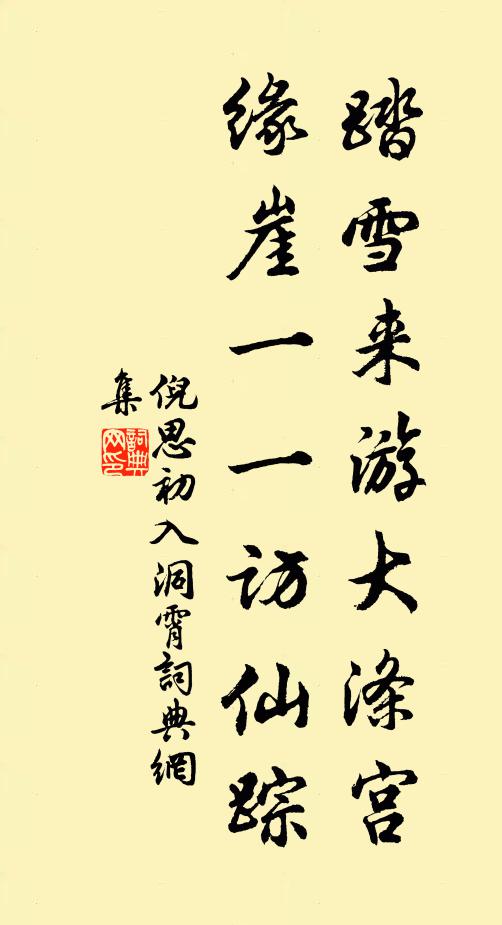 踏雪来游大涤宫
缘崖一一访仙踪
倪思初入洞霄詞典網
集
詞典网印